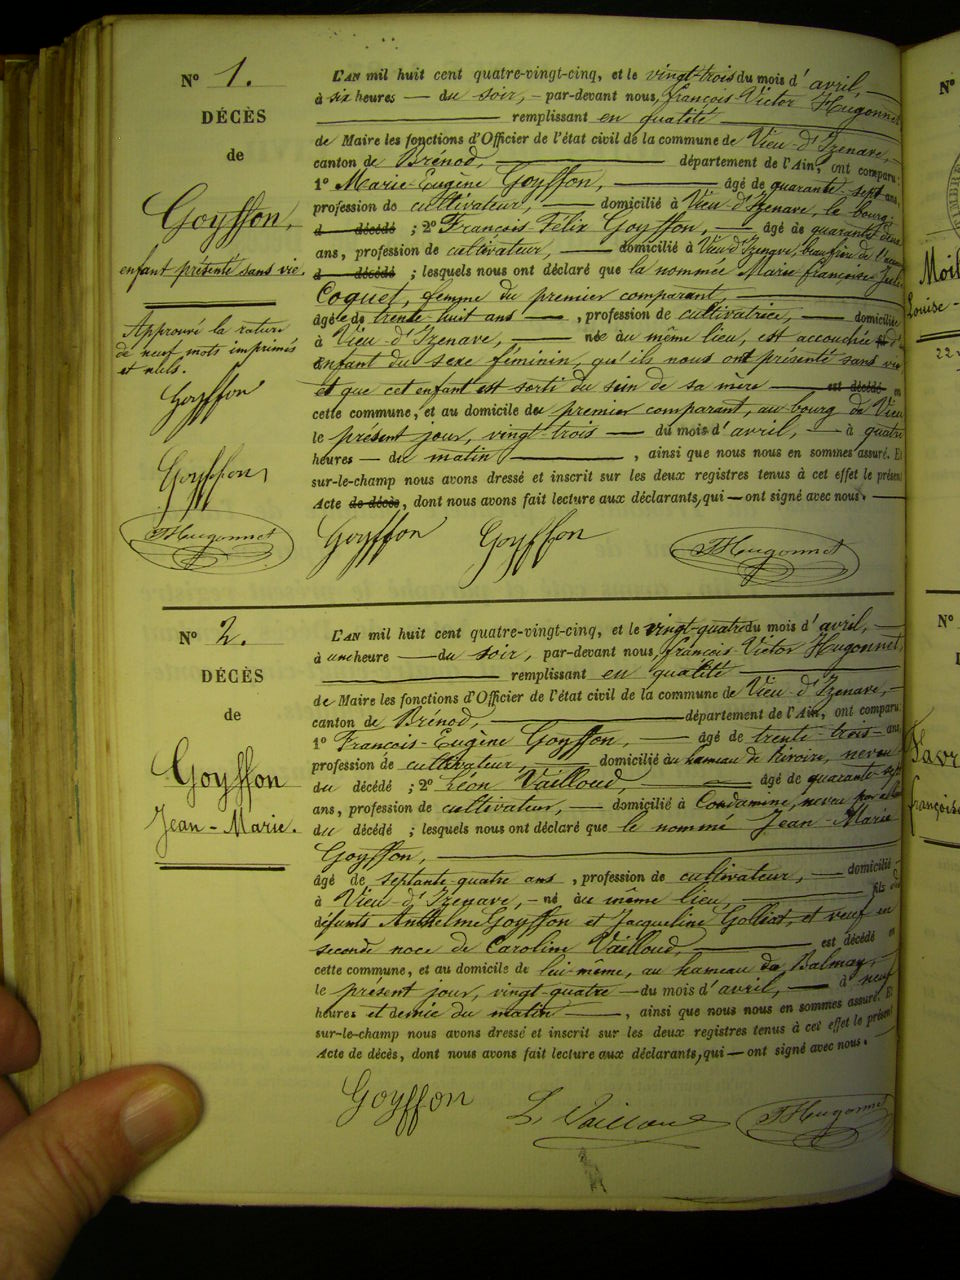 N° 1.
DÉCÈS
de
Goyffon,
enfant présenté sans vie.
Approuvé la rature
de neuf mots imprimés
et nuls.
Goyffon
Goyffon
FHugonnet
L'AN mil huit cent quatre-vingt-cinq, et le vingt-trois du mois d'avril,
à six heures — du soir, — par-devant nous, françois Victor Hugonnet
remplissant en qualité
de Maire les fonctions d'Officier de l'état civil de la commune de Vieu-d'Izenave,
canton de Brénod, département de l'Ain, ont comparu:
1° Marie-Eugène Goyffon, âgé de quarante-sept ans,
profession de cultivateur, domicilié à Vieu-d'Izenave, le bourg.
d décédé ; 2° François Félix Goyffon, âgé de quarante deux
ans, profession de cultivateur, domicilié à Vieu d'Izenave, beau frère de l'
d décédé ; lesquels nous ont déclaré que la nommée Marie françoise Julie
Coquet, femme du premier comparant,
âgée de trente-huit ans — , profession de cultivatrice, — domiciliée
à Vieu-d'Izenave, — née au même lieu, est accouchée d'
enfant du sexe féminin, qu'ils nous ont présenté sans vie
et que cet enfant est sorti du sein de sa mère — est décédé en
cette commune, et au domicile du premier comparant, au bourg de Vieu
le présent jour, vingt-trois — du mois d'avril, — à quatre
heures — du matin , ainsi que nous nous en sommes assuré. Et
sur-le-champ nous avons dressé et inscrit sur les deux registres tenus à cet effet le présent
Acte de décès, dont nous avons fait lecture aux déclarants, qui — ont signé avec nous.
Goyffon Goyffon FHugonnet
N° 2.
DÉCÈS
de
Goyffon
Jean-Marie.
L'AN mil huit cent quatre-vingt-cinq, et le vingt-quatre du mois d'avril,
à une heure — du soir, par-devant nous, françois Victor Hugonnet,
remplissant en qualité
de Maire les fonctions d'Officier de l'état civil de la commune de Vieu-d'Izenave,
canton de Brénod, département de l'Ain, ont comparu
1° François-Eugène Goyffon, — âgé de trente-trois ans,
profession de cultivateur, domicilié au hameau de heroire, neveu
du décédé ; 2° Léon Vailloud, âgé de quarante-sept
ans, profession de cultivateur, — domicilié à Condamine, neveu par
du décédé ; lesquels nous ont déclaré que le nommé Jean-Marie
Goyffon,
âgé de septante-quatre ans , profession de cultivateur, — domicilié
à Vieu-d'Izenave, — né au même lieu, fils de
défunts Anthelme Goyffon et Jacqueline Golliat, et veuf en
seconde noce de Caroline Vailloud, est décédé en
cette commune, et au domicile de lui-même, au hameau du Balmay,
le présent jour, vingt-quatre — du mois d'avril, — à neuf
heures et demie du matin , ainsi que nous nous en sommes assuré. Et
sur-le-champ nous avons dressé et inscrit sur les deux registres tenus à cet effet le présent
Acte de décès, dont nous avons fait lecture aux déclarants, qui — ont signé avec nous.
Goyffon L. Vailloud FHugonnet